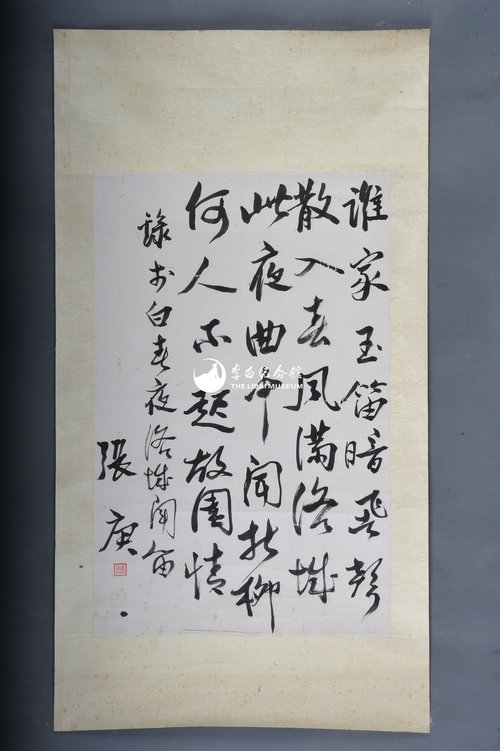 誰家玉笛暗飛聲
散入春風滿洛城
此夜曲中聞折柳
何人不起故園情
錄李白春夜洛城聞笛
張庚
李白纪念馆
THE LIBAI MUSEUM